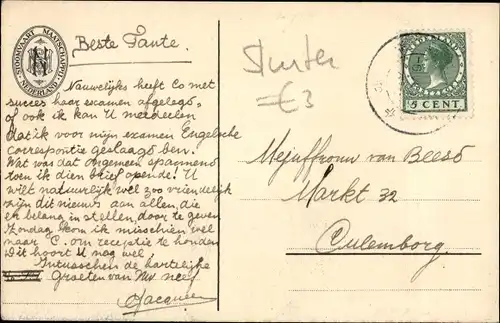 STOOMVAART MAATSCHAPPIJ NEDERLAND
Beste Tante.
Nauwelijks heeft Co met
succes haar examen afgelegd,
of ook ik kan U mededeelen
dat ik voor mijn examen Engelsche
correspontie geslaagd ben.
Wat was dat ongemeen spannend
toen ik dien brief opende! U
wilt natuurlijk wel zoo vriendelijk
zijn dit nieuws aan allen, die
er belang in stellen, door te geven
Zondag kom ik misschien wel
naar C. om receptie te houden
Dit hoort U nog wel
Intusschen de hartelijke
Groeten van Uw neef
= € 3
5 CENT
Mejuffrouw van Beesd
Markt 32
Culemborg.